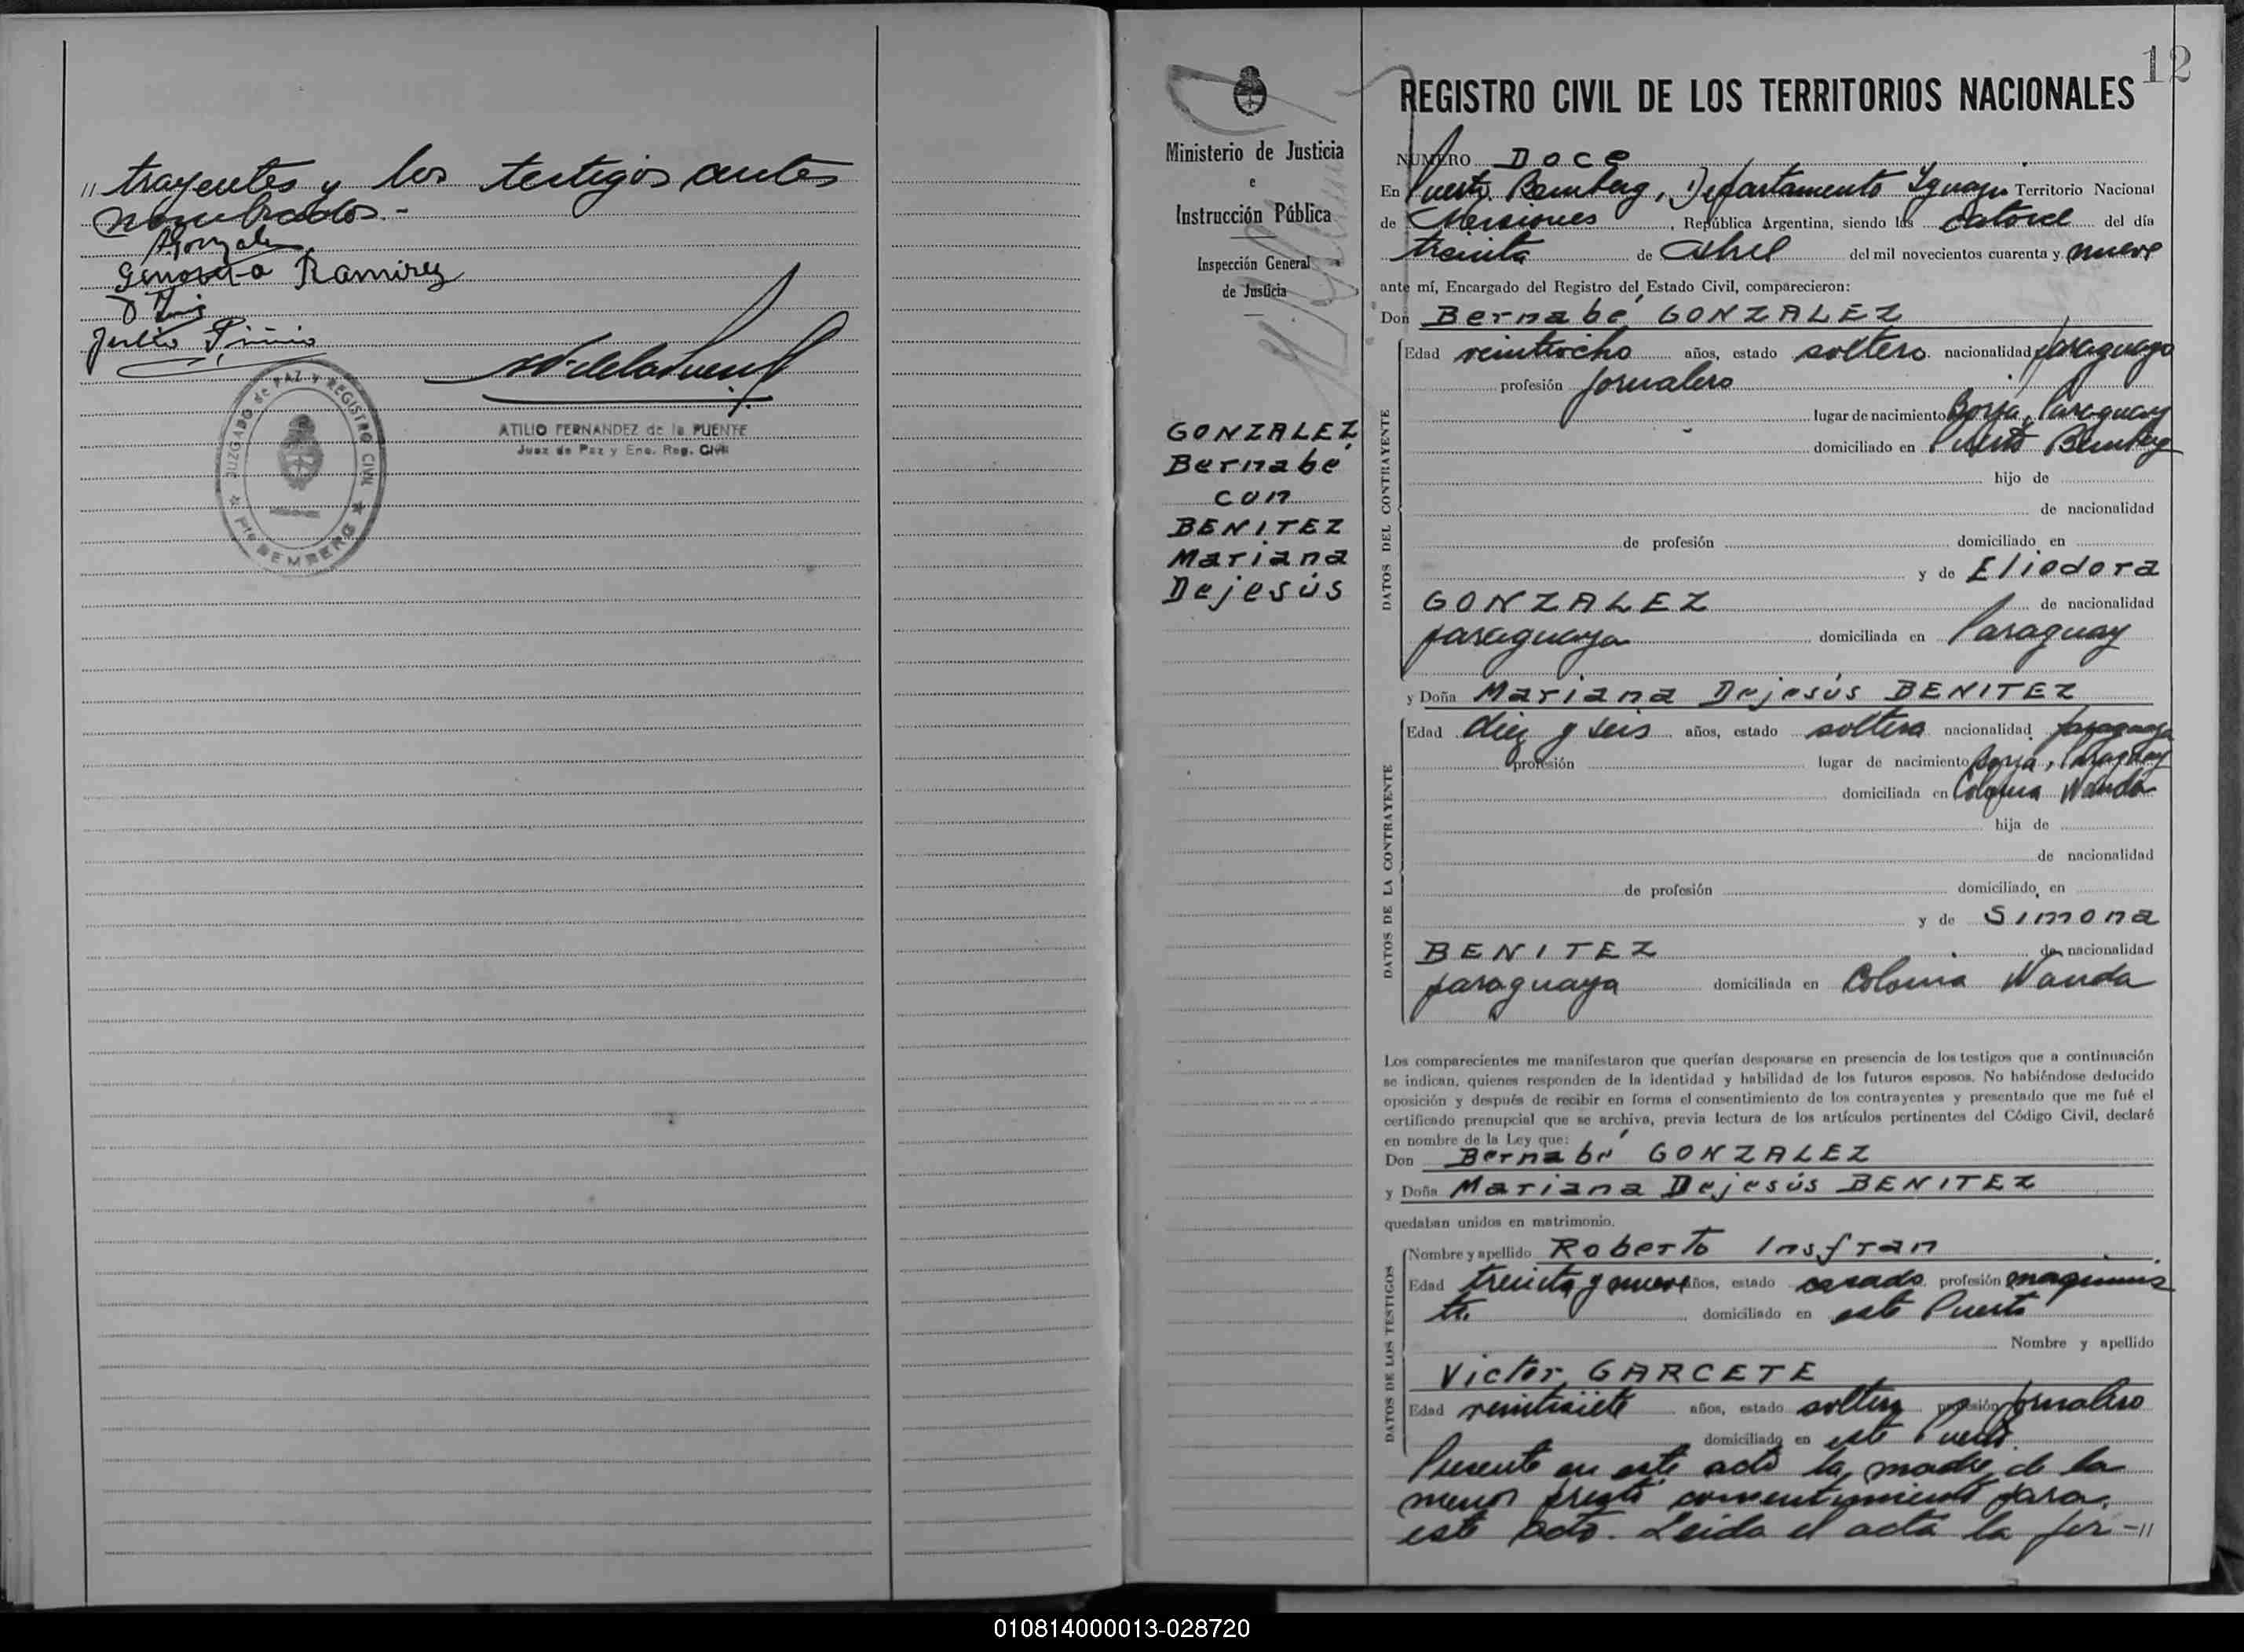 " trayentes y los testigos antes
nombrados.-
AGonzalez
Genoveva Ramirez
Julio Piñño
JUZGADO de PAZ Y REGISTRO CIVIL
Pto BEMBERG
ATILIO FERNANDEZ de la PUENTE
Juez de Paz y Enc. Reg. Civil
12
Ministerio de Justicia
e
Instrucción Pública
Inspección General
de Justicia
GONZALEZ
Bernabé
con
BENITEZ
Mariana
Dejesús
REGISTRO CIVIL DE LOS TERRITORIOS NACIONALES
NUMERO Doce
En Puerto Bemberg, Departamento Iguazú Territorio Nacional
de Misiones, República Argentina, siendo las catorce del día
treinta de Abril del mil novecientos cuarenta y nueve
ante mí, Encargado del Registro del Estado Civil, comparecieron:
Don Bernabé GONZALEZ
DATOS DEL CONTRAYENTE
Edad veintiocho años, estado soltero nacionalidad paraguayo
profesión jornalero
lugar de nacimiento Borja, Paraguay
domiciliado en Puerto Bemberg
hijo de
de nacionalidad
de profesión domiciliado en
y de Eliodora
GONZALEZ de nacionalidad
paraguaya domiciliada en Paraguay
y Doña Mariana Dejesús BENITEZ
DATOS DE LA CONTRAYENTE
Edad diez y seis años, estado soltera nacionalidad paraguaya
profesión lugar de nacimiento Borja, Paraguay
domiciliada en Colonia Wanda
hija de
de nacionalidad
de profesión domiciliado en
y de Simona
BENITEZ de nacionalidad
paraguaya domiciliada en Colonia Wanda
Los comparecientes me manifestaron que querían desposarse en presencia de los testigos que a continuación
se indican, quienes responden de la identidad y habilidad de los futuros esposos. No habiéndose deducido
oposición y después de recibir en forma el consentimiento de los contrayentes y presentado que me fué el
certificado prenupcial que se archiva, previa lectura de los artículos pertinentes del Código Civil, declaré
en nombre de la Ley que:
Don Bernabé GONZALEZ
y Doña Mariana Dejesús BENITEZ
quedaban unidos en matrimonio.
DATOS DE LOS TESTIGOS
Nombre y apellido Roberto Insfran
Edad treinta y nueve años, estado casado profesión maquinis
ta domiciliado en este Puerto
Nombre y apellido
Victor GARCETE
Edad veintisiete años, estado soltero profesión jornalero
domiciliado en este Puerto.
Presente en este acto la madre de la
menor prestó consentimiento para
este acto. Leida el acta la fir-"
010814000013-028720